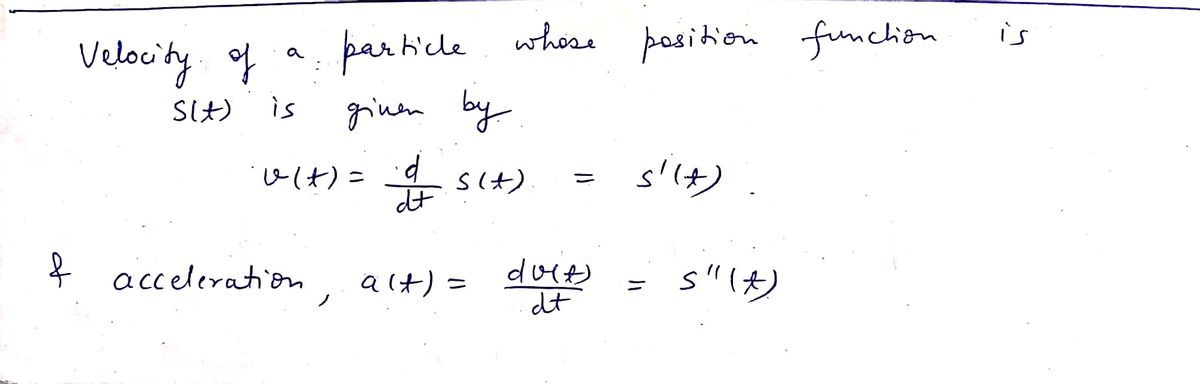 Velocity of a particle whose position function is
S(t) is given by
v(t) = d/dt s(t) = s'(t).
& acceleration, a(t) = dv(t)/dt = s''(t)